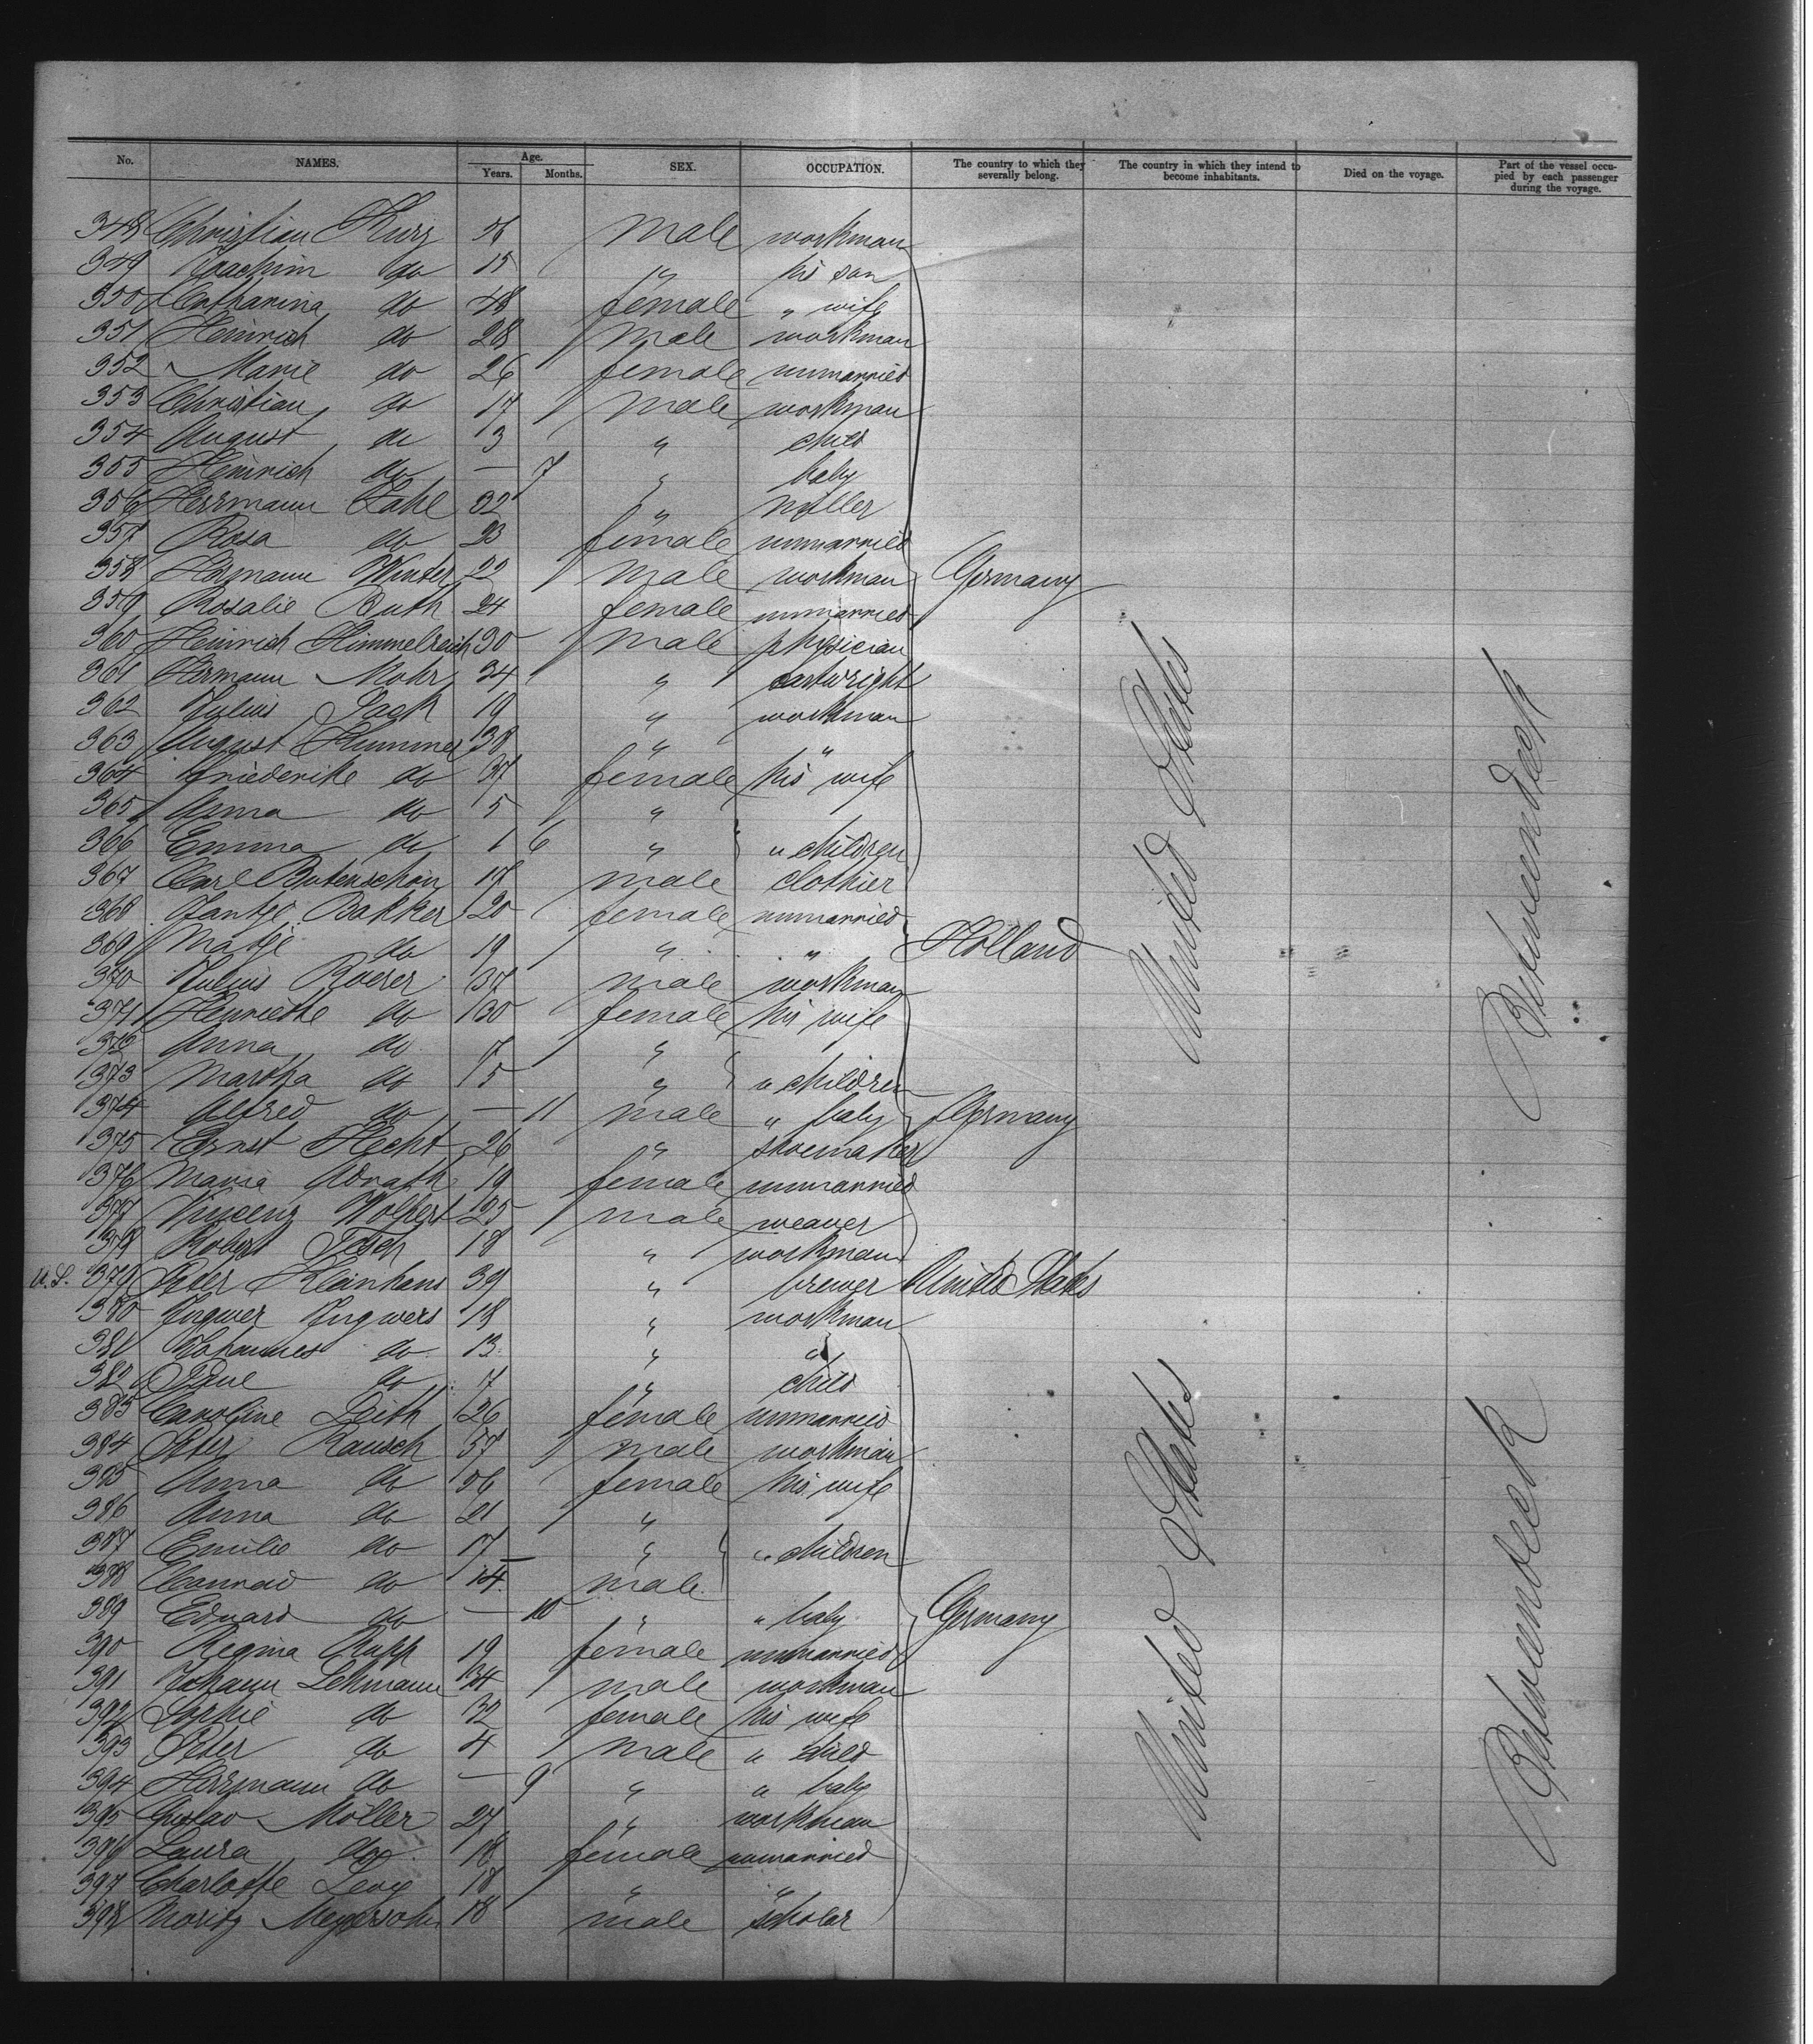 No. NAMES. Age. Years. Months. SEX. OCCUPATION. The country to which they severally belong. The country in which they intend to become inhabitants. Died on the voyage. Part of the vessel occupied by each passenger during the voyage.
348 Christian Kurz male workman
349 Joachim do 15 " his son
350 Catharina do 48 female " wife
351 Heinrich do 28 male workman
352 Marie do 26 female unmarried
353 Christian do 17 male workman
354 August do 3 " child
355 Heinrich do — 7 " baby
356 Herrmann 32 " miller
357 Rosa do 23 female unmarried
358 Hermann Winter 22 male workman Germany
359 Rosalie Buth 24 female unmarried
360 Heinrich Himmelreich 30 male physician
361 Hermann Mohr 34 " cartwright
362 Julius 19 " workman
363 August Hummel 38 " "
364 Friederike do 37 female his wife
365 Anna do 5 "
366 Emma do 1 6 " " children
367 Carl Butenschön male clothier
368 Jantje Bakker 20 female unmarried
369 Matje do 19 " " Holland
370 Julius 37 male workman
371 Henriette do 30 female his wife
372 Anna do 7 "
373 Martha do 5 " " children
374 Alfred do — 11 male " baby Germany
375 Ernst Hecht 26 " shoemaker
376 Maria 19 female unmarried
377 Vincenz Wolpert 25 male weaver
378 Robert 18 " workman
U.S. 379 Peter Kleinhans 39 " brewer United States
380 Ingwer Ingwers 18 " workman
381 Johannes do 13 " "
382 do 7 " child
383 Caroline Leith 26 female unmarried
384 Peter Rausch 57 male workman
385 Anna do 56 female his wife
386 Anna do 21 "
387 Emilie do 17 " " children
388 Conrad do 14 male
389 Eduard do — 10 " " baby Germany
390 Regina Rupp 19 female unmarried
391 Johann Lehmann 34 male workman
392 Sophie do 32 female his wife
393 Peter do 4 male " child
394 Herrmann do — 9 " " baby
395 Gustav Möller 27 " workman
396 Laura do 18 female unmarried
397 Charlotte Levy 18 " "
398 Moritz Meyersohn 18 male scholar
United States
Betweendeck
United States
Betweendeck